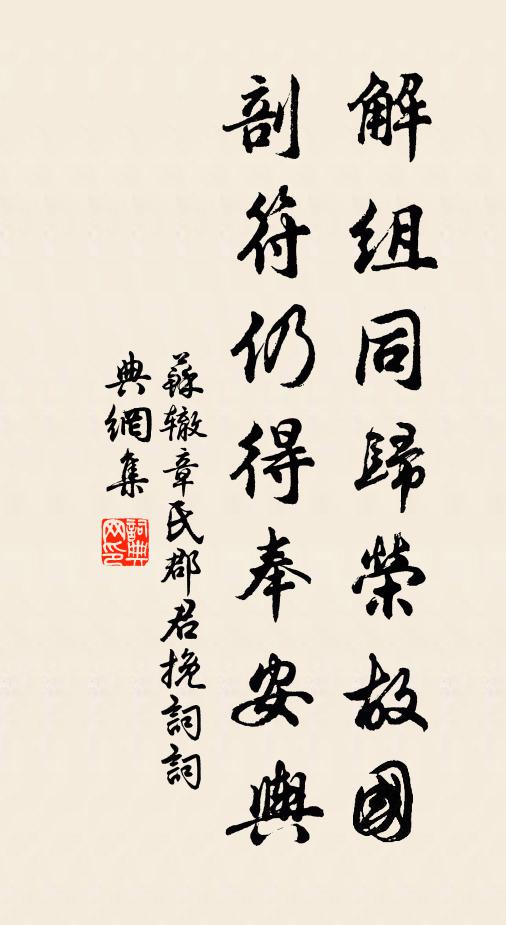 解組同歸榮故國
剖符仍得奉安輿
蘇辙章氏郡君挽詞詞
典網集
詞典网印